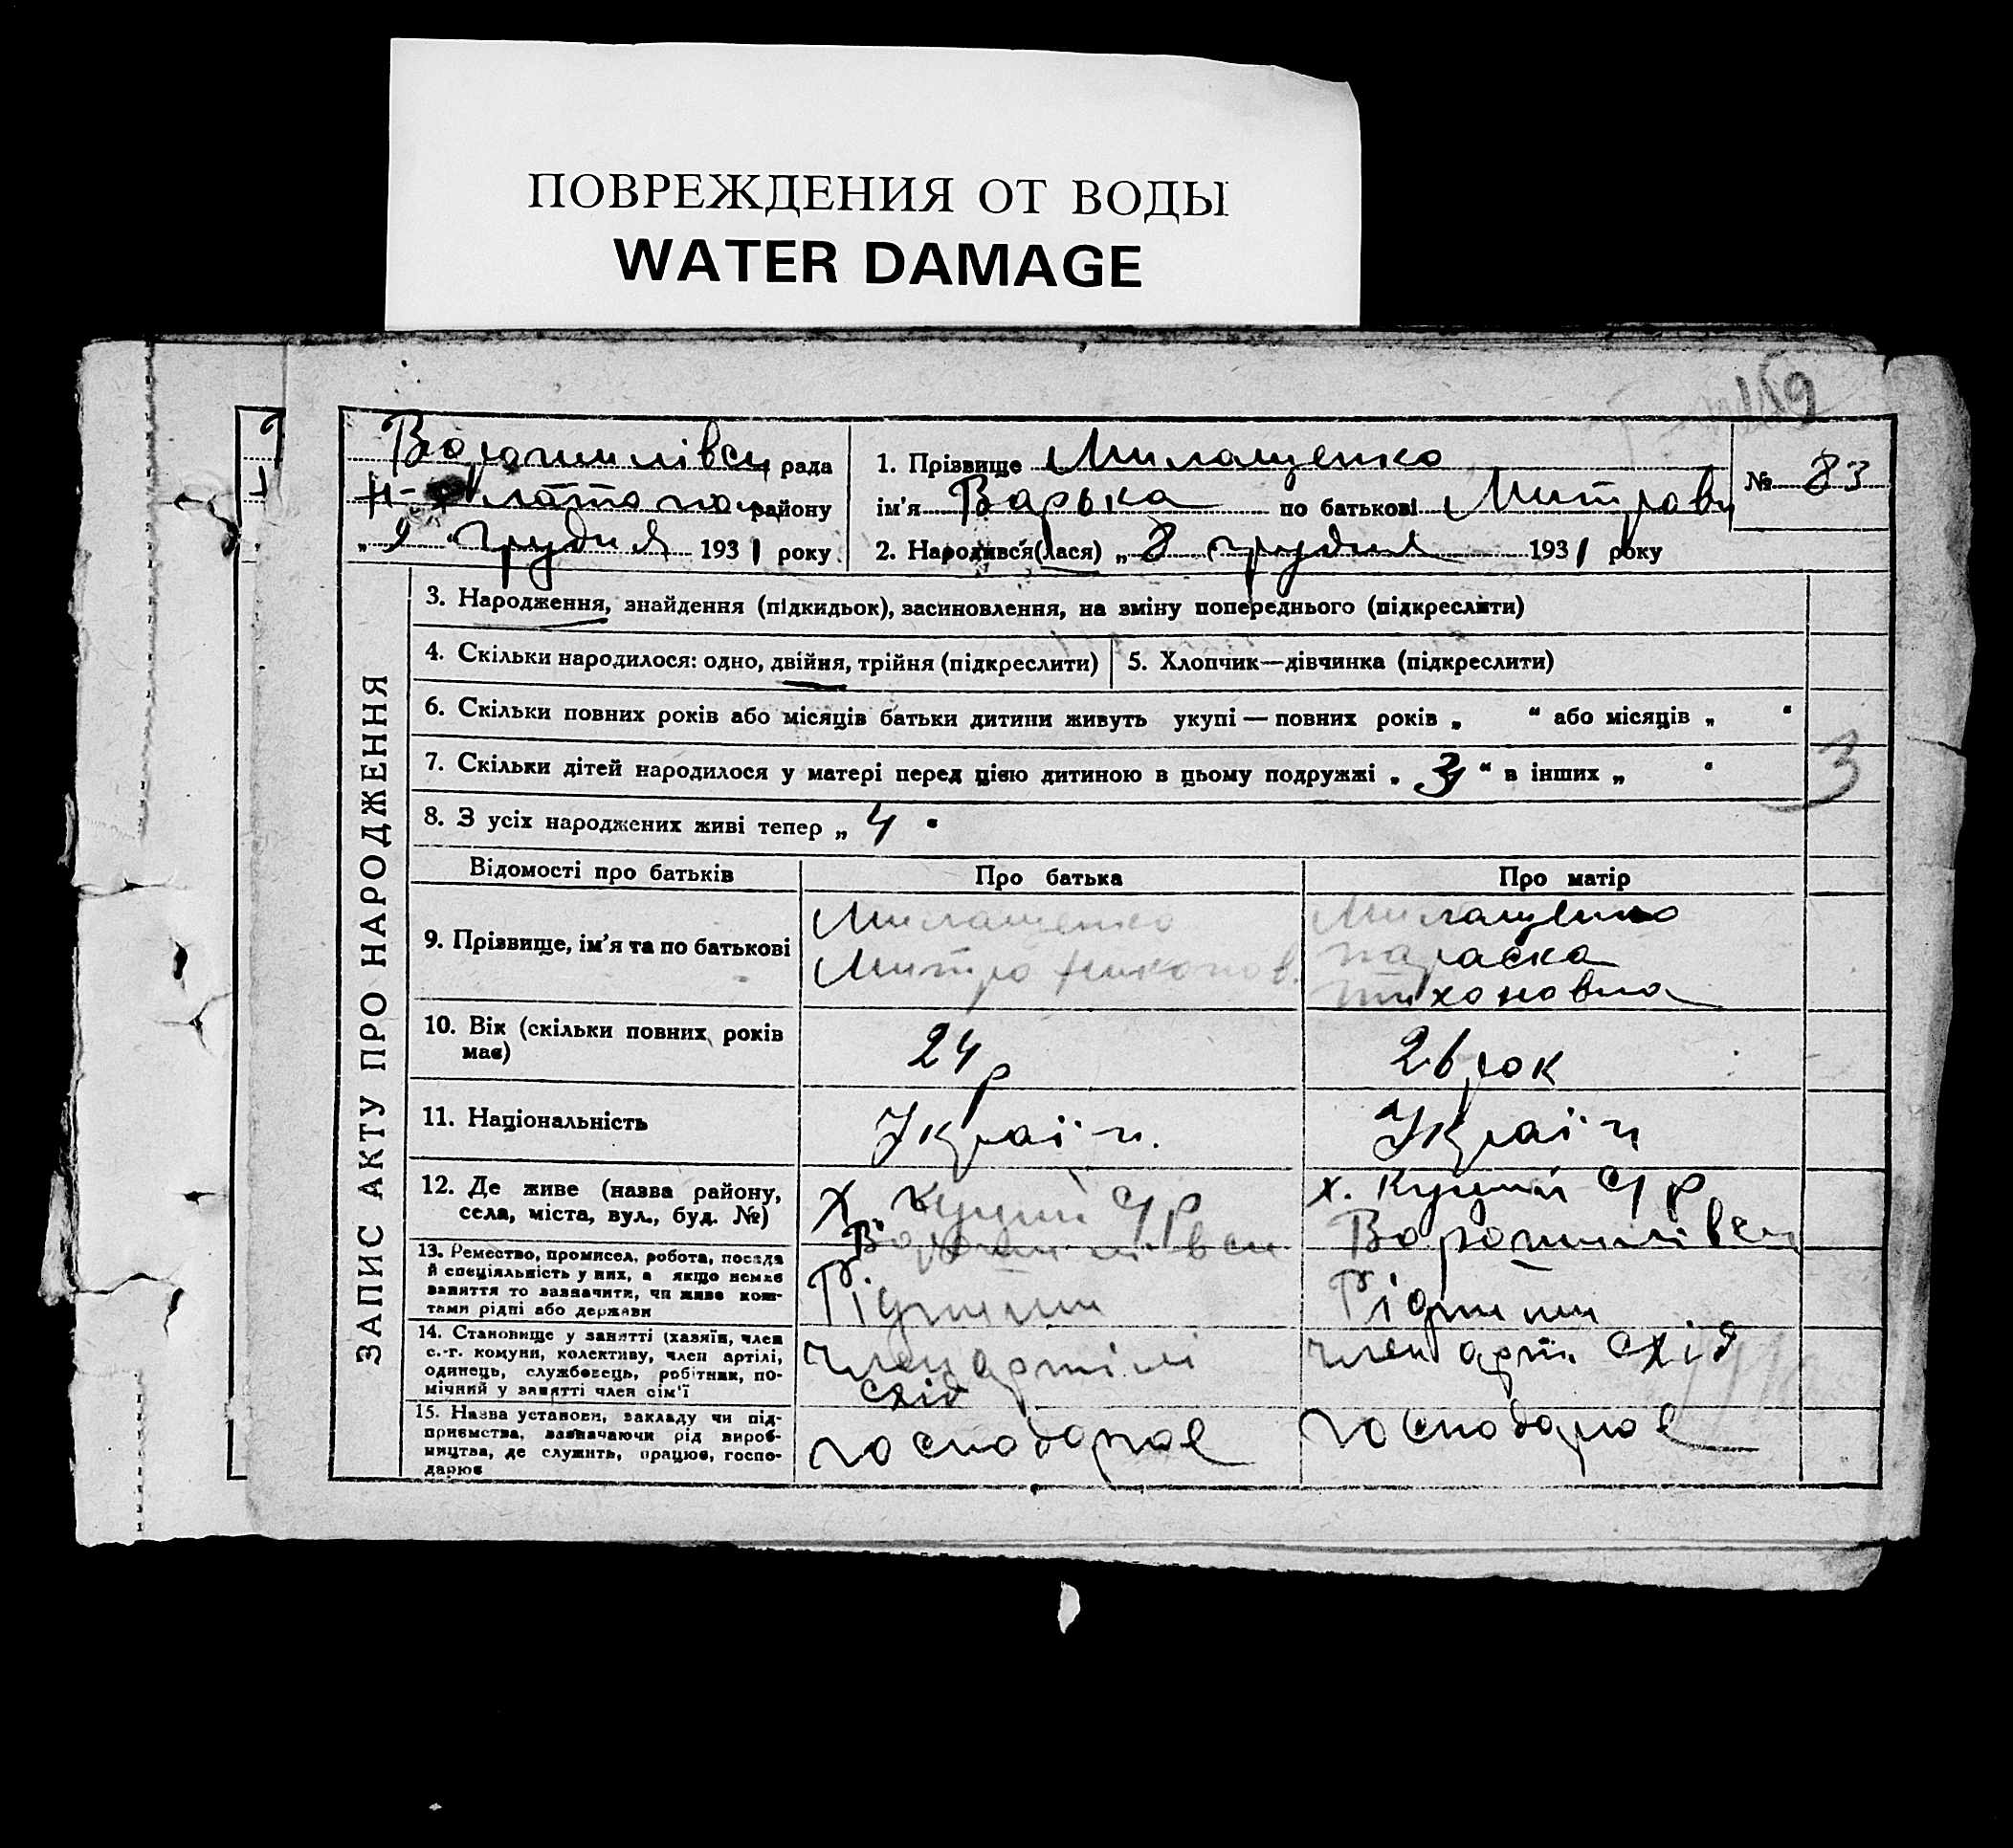 ПОВРЕЖДЕНИЯ ОТ ВОДЫ
WATER DAMAGE
Ворошилівськ рада
району
„ 9 “ грудня 1931 року
1. Прізвище Милащенко
ім'я Варька по батькові Митров
№ 83
2. Народився(лася) „ 8 грудня 1931 року
ЗАПИС АКТУ ПРО НАРОДЖЕННЯ
3. Народження, знайдення (підкидьок), засиновлення, на зміну попереднього (підкреслити)
4. Скільки народилося: одно, двійня, трійня (підкреслити)
5. Хлопчик—дівчинка (підкреслити)
6. Скільки повних років або місяців батьки дитини живуть укупі — повних років „ “ або місяців „ “
7. Скільки дітей народилося у матері перед цією дитиною в цьому подружжі „ 3 “ в інших „ “
3
8. З усіх народжених живі тепер „ 4 “
Відомості про батьків
Про батька
Про матір
9. Прізвище, ім'я та по батькові
Милащенко
Митро Никонов.
Милащенко
Параска
Тихоновна
10. Вік (скільки повних років
має)
24 р
26 рок
11. Національність
Україн.
Україн
12. Де живе (назва району,
села, міста, вул., буд. №)
х Куций С/Р
Ворошилівськ
х. Куций С/Р
Ворошилівськ
13. Ремество, промисел, робота, посада
й спеціяльність у них, а якщо немає
заняття то зазначити, чи живе кош-
тами рідні або держави
14. Становище у занятті (хазяїн, член
с.-г. комуни, колективу, член артілі,
одинець, службовець, робітник, по-
мічний у занятті член сім'ї
член артілі
Схід
член арт. Схід
15. Назва установи, закладу чи під-
приємства, зазначаючи рід вироб-
ництва, де служить, працює, госпо-
дарює
господарює
господарює